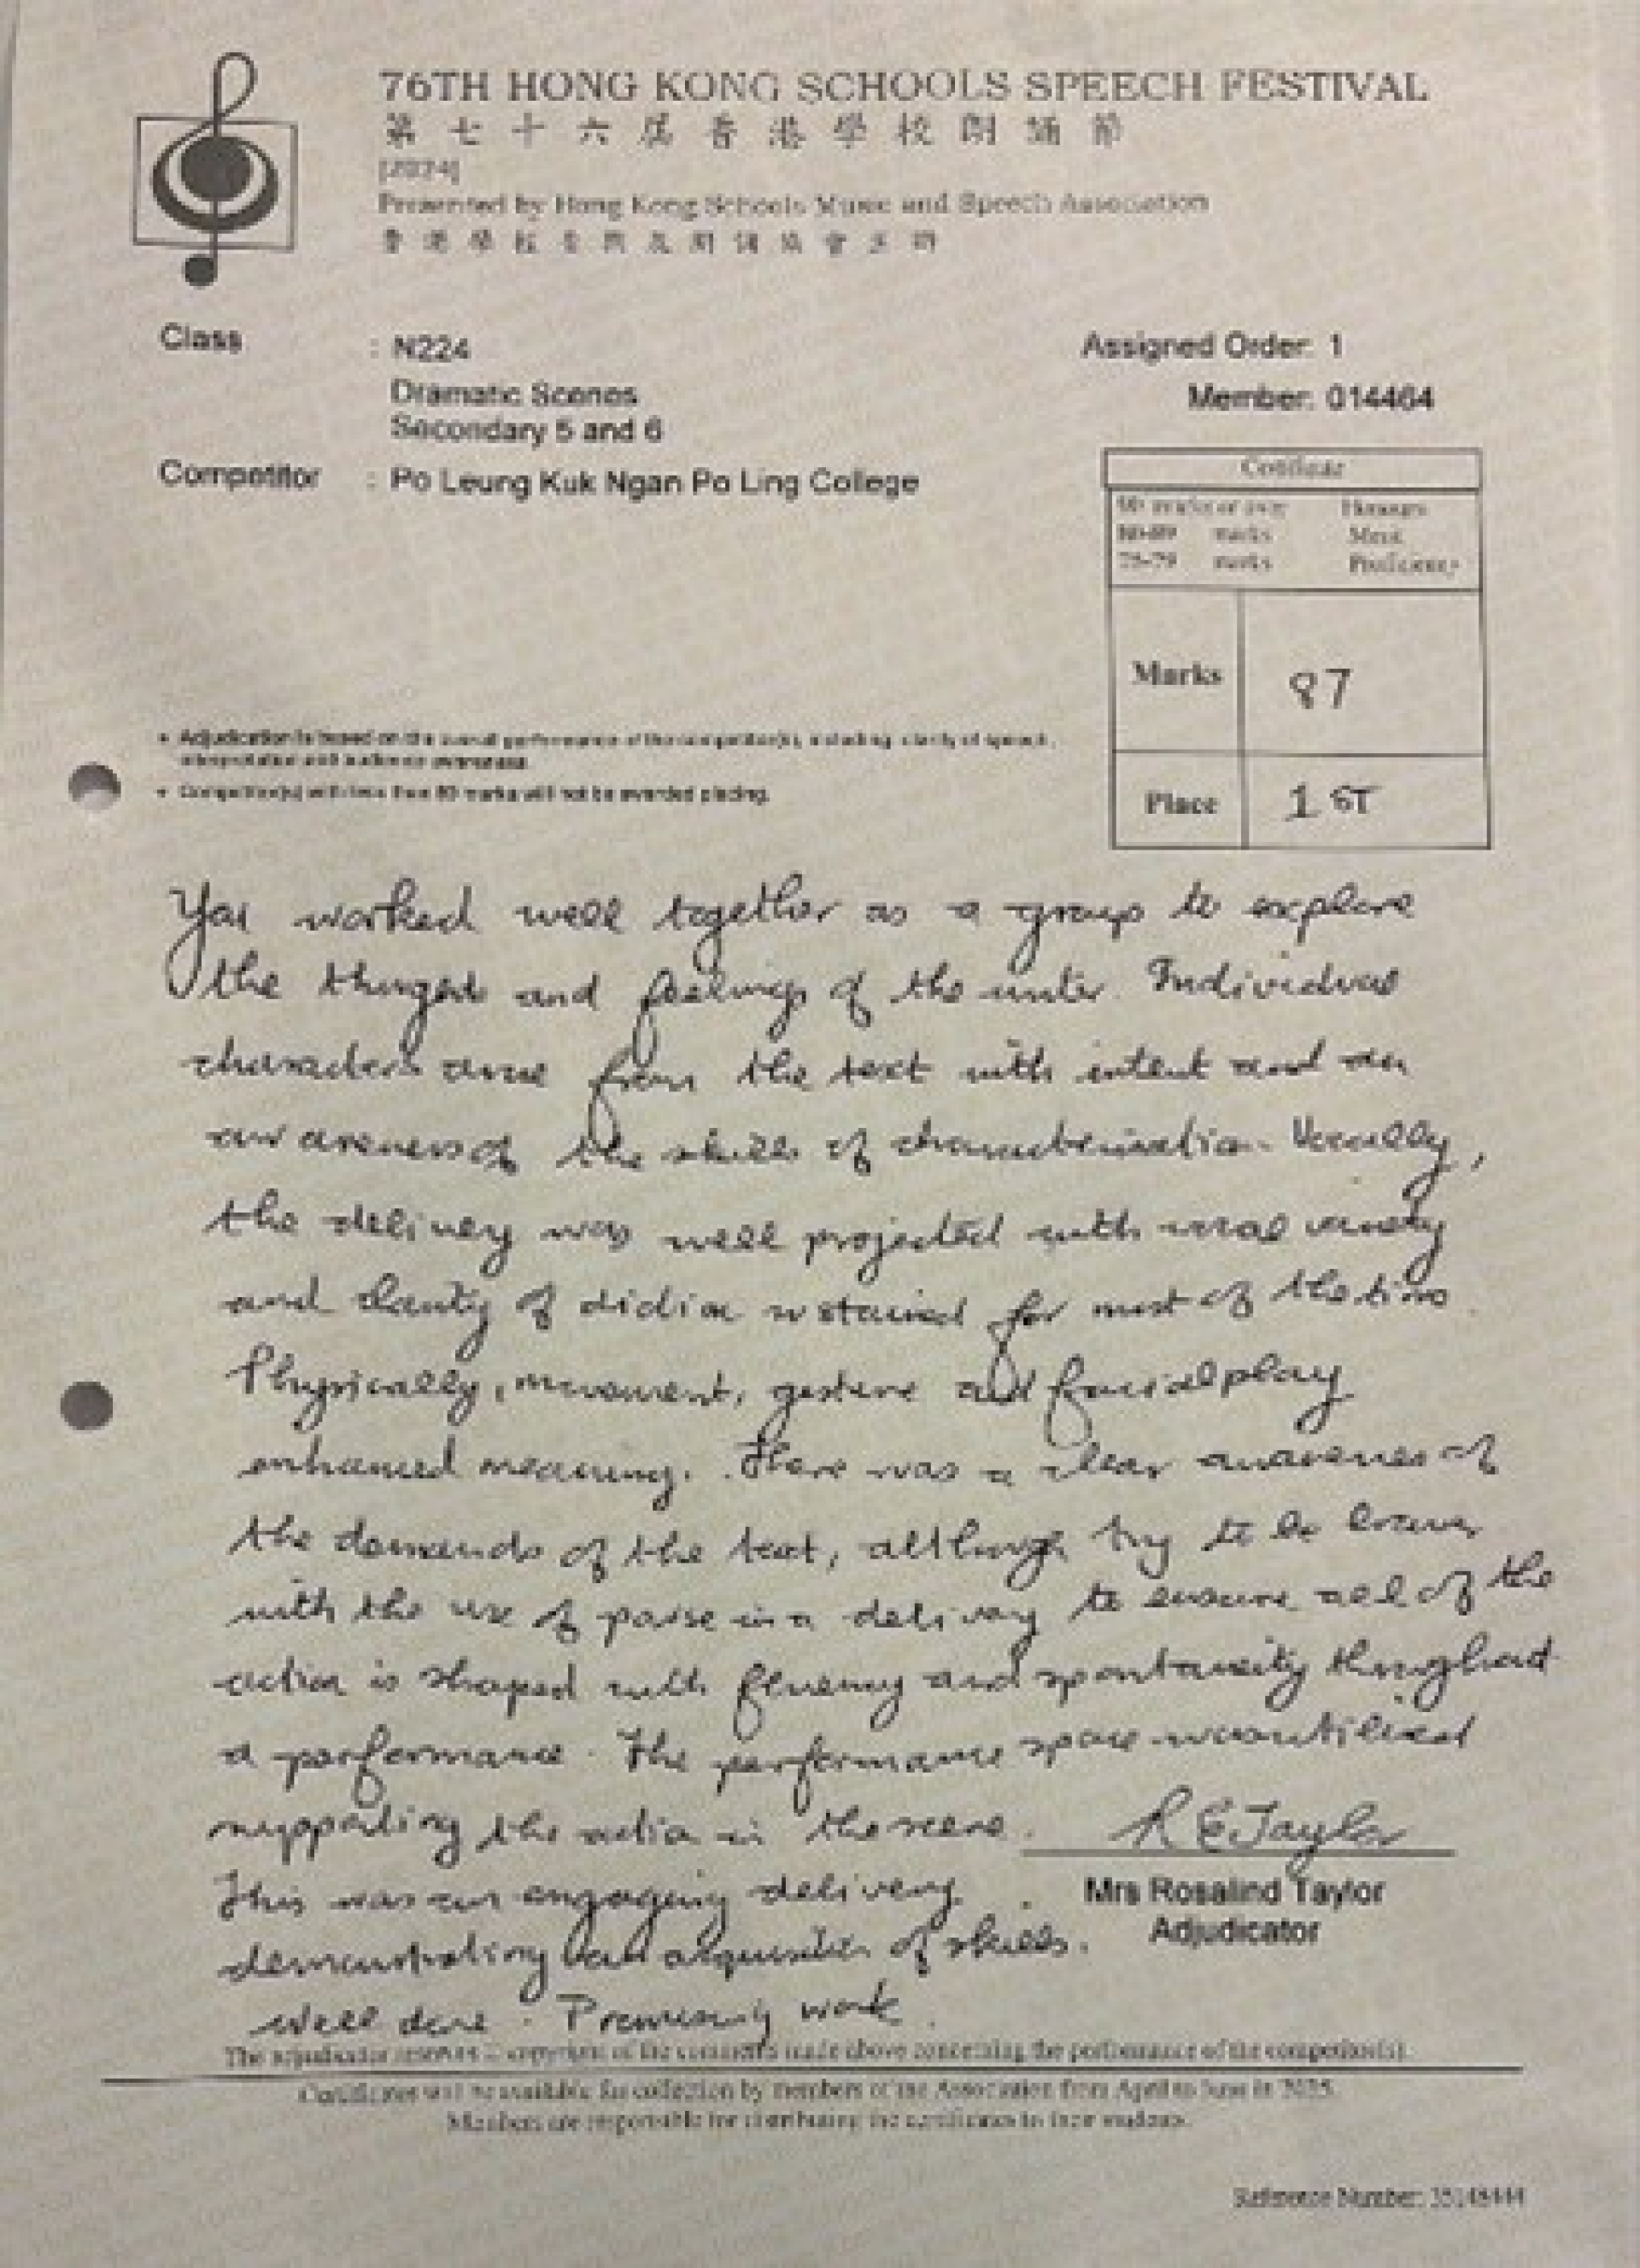 76TH HONG KONG SCHOOLS SPEECH FESTIVAL
第七十六屆香港學校朗誦節
[2024]
Presented by Hong Kong Schools Music and Speech Association
香港學校音樂及朗誦協會主辦
Class : N224
Assigned Order: 1
Dramatic Scenes
Member: 014464
Secondary 5 and 6
Competitor : Po Leung Kuk Ngan Po Ling College
Certificate
90 marks or over Honours
80-89 marks Merit
75-79 marks Proficiency
Marks 87
• Adjudication is based on the overall performance of the competitor(s), including clarity of speech,
interpretation and audience awareness.
• Competitor(s) with less than 80 marks will not be awarded placing.
Place 1ST
You worked well together as a group to explore
the thoughts and feelings of the writer. Individual
characters arose from the text with intent and an
awareness of the skills of characterisation. Vocally,
the delivery was well projected with vocal variety
and clarity of diction sustained for most of the time.
Physically, movement, gesture and facial play
enhanced meaning. There was a clear awareness of
the demands of the text, although try to be braver
with the use of pause in a delivery to ensure all of the
action is shaped with fluency and spontaneity throughout
a performance. The performance space was utilised
supporting the action in the scene.
R E Taylor
This was an engaging delivery
Mrs Rosalind Taylor
demonstrating acquisition of skills.
Adjudicator
Well done. Promising work.
The adjudicator reserves copyright of the comments made above concerning the performance of the competitor(s).
Certificates will be available for collection by members of the Association from April to June in 2025.
Members are responsible for distributing the certificates to their students.
Reference Number: